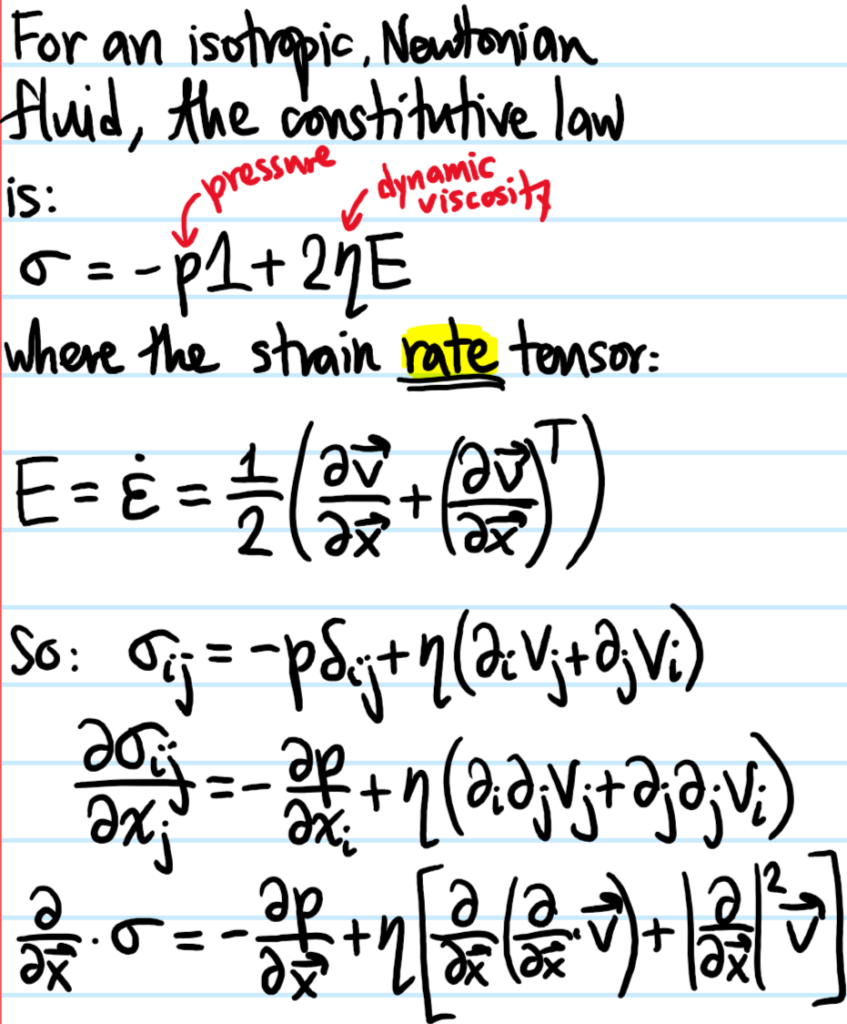 For an isotropic, Newtonian
fluid, the constitutive law
is: pressure dynamic viscosity
σ = -p1 + 2ηE
where the strain rate tensor:
E = ε̇ = 1/2 (∂v⃗/∂x⃗ + (∂v⃗/∂x⃗)ᵀ)
So: σᵢⱼ = -pδᵢⱼ + η(∂ᵢvⱼ + ∂ⱼvᵢ)
∂σᵢⱼ/∂xⱼ = -∂p/∂xᵢ + η(∂ᵢ∂ⱼvⱼ + ∂ⱼ∂ⱼvᵢ)
∂/∂x⃗ · σ = -∂p/∂x⃗ + η[∂/∂x⃗ (∂/∂x⃗ · v⃗) + |∂/∂x⃗|² v⃗]